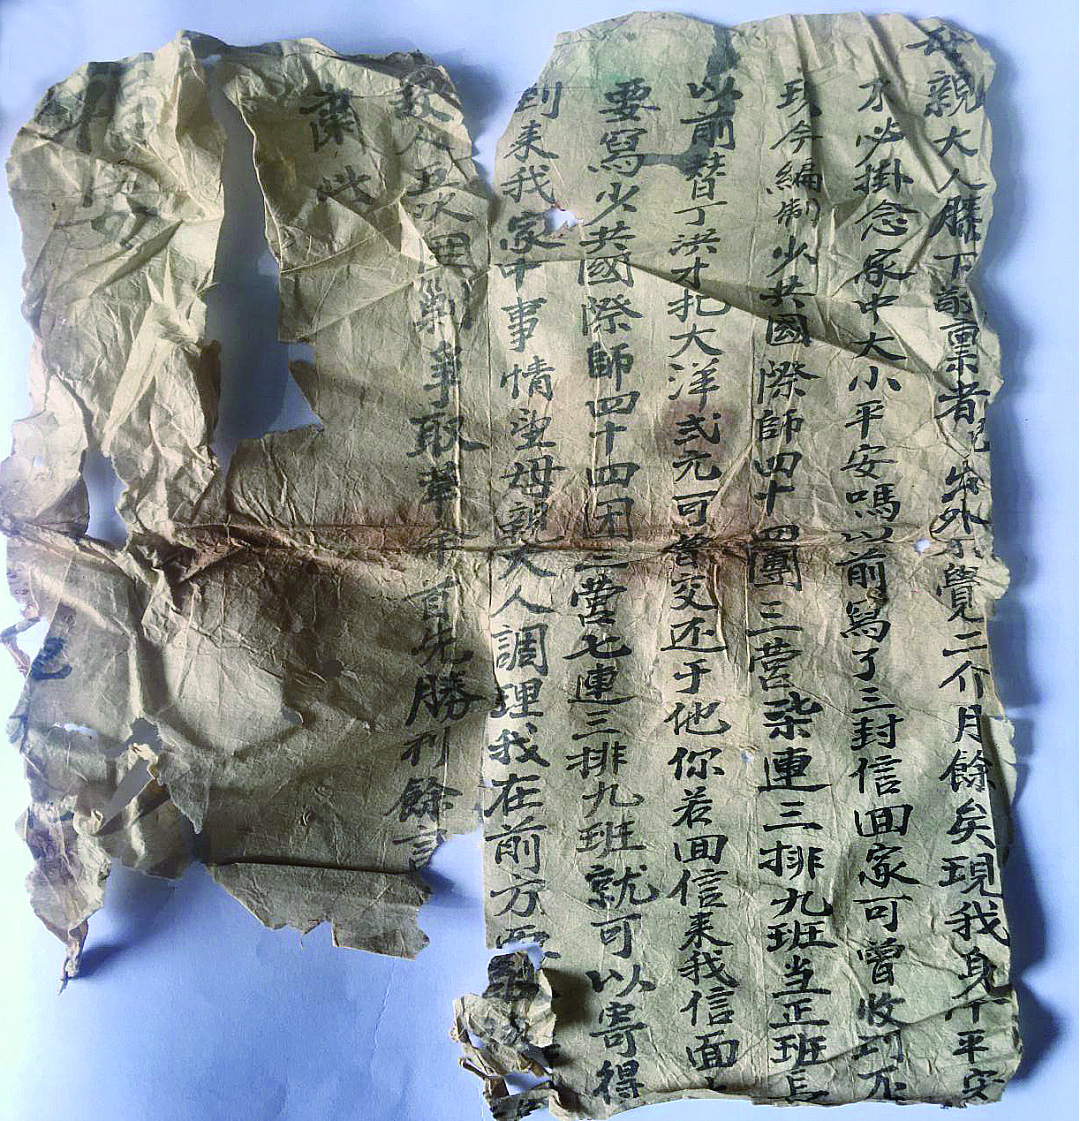 母親大人膝下敬稟者兒出外不覺二个月餘矣現我身体平安
不必掛念家中大小平安嗎以前寫了三封信回家可曾收到不
現今編制少共國際師四十四團三营柒連三排九班当正班長
以前替丁洪才扎大洋弍元可曾交还于他你若回信来我信面上
要寫少共國際師四十四团三营七連三排九班就可以寄得
到来我家中事情望母親大人調理我在前方
敌人五次囲剿爭取革命首先勝利餘言
肅此